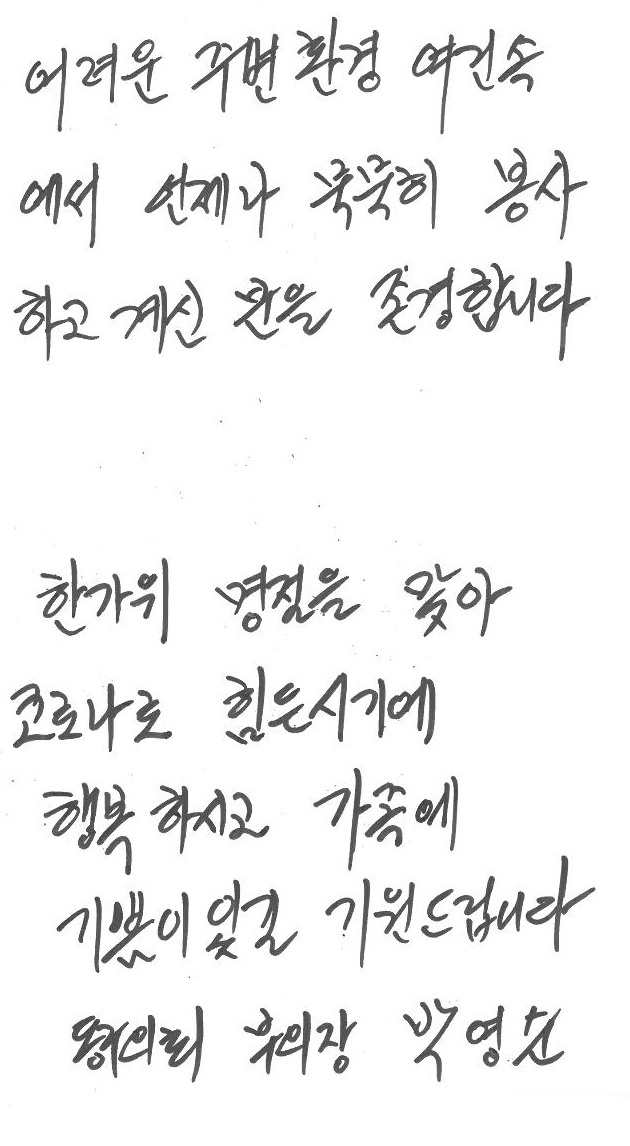 어려운 주변 환경 여건속
에서 언제나 묵묵히 봉사
하고 계신 분을 존경합니다
한가위 명절을 맞아
코로나로 힘든시기에
행복 하시고 가족에
기쁨이 있길 기원드립니다
부의장 박영순